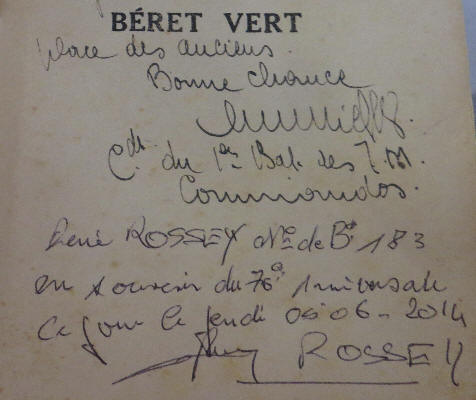 BÉRET VERT
place des anciens.
Bonne chance
Cdt du 1er Bat. des F.M.
Commandos.
René ROSSEY No de Bt 183
en souvenir du 70e Anniversaire
Ce jour le jeudi 06 06 - 2014
ROSSEY